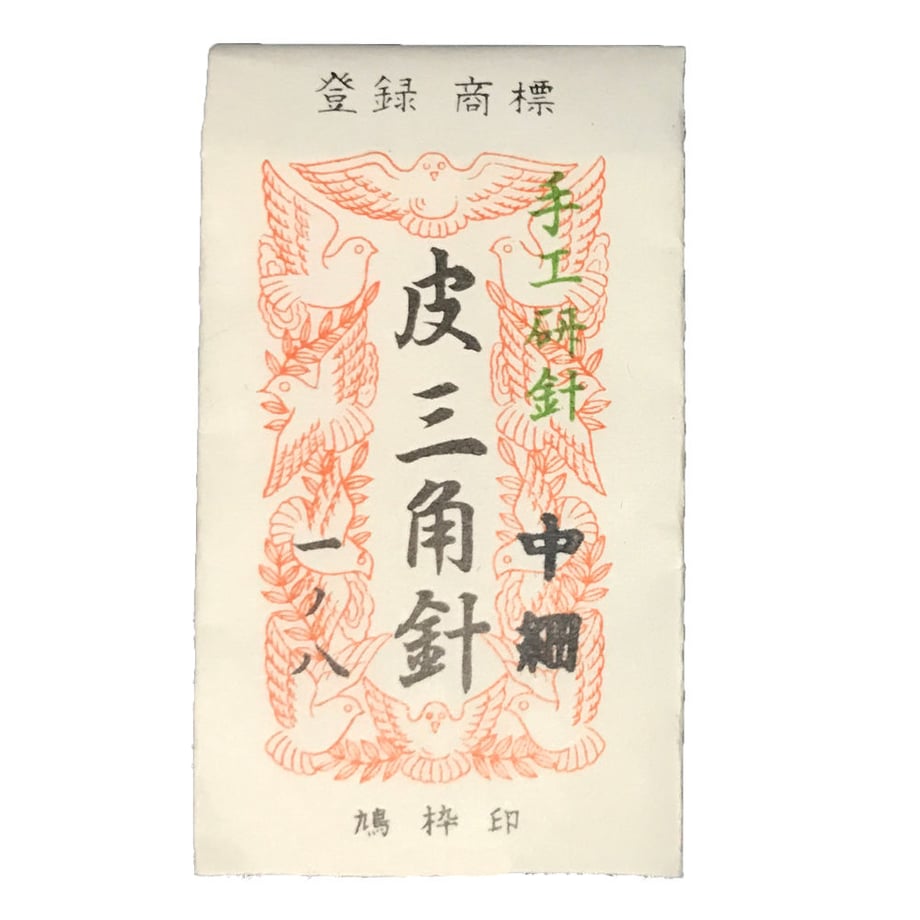 登録 商標
手工研針
中細
皮三角針
一ノ八
鳩枠印